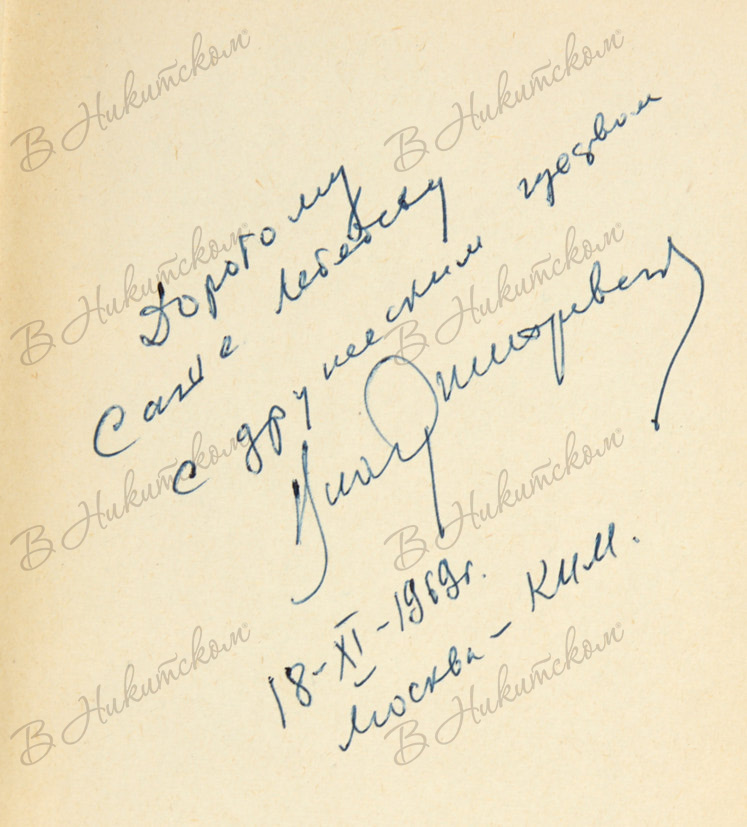 В Никитском® В Никитском®
Дорогому
Саше Лебедеву
с дружеским чувством
Влад Дмитревский
18-XI-1969г.
Москва – КИМ.
В Никитском® В Никитском®
В Никитском® В Никитском®
В Никитском® В Никитском®